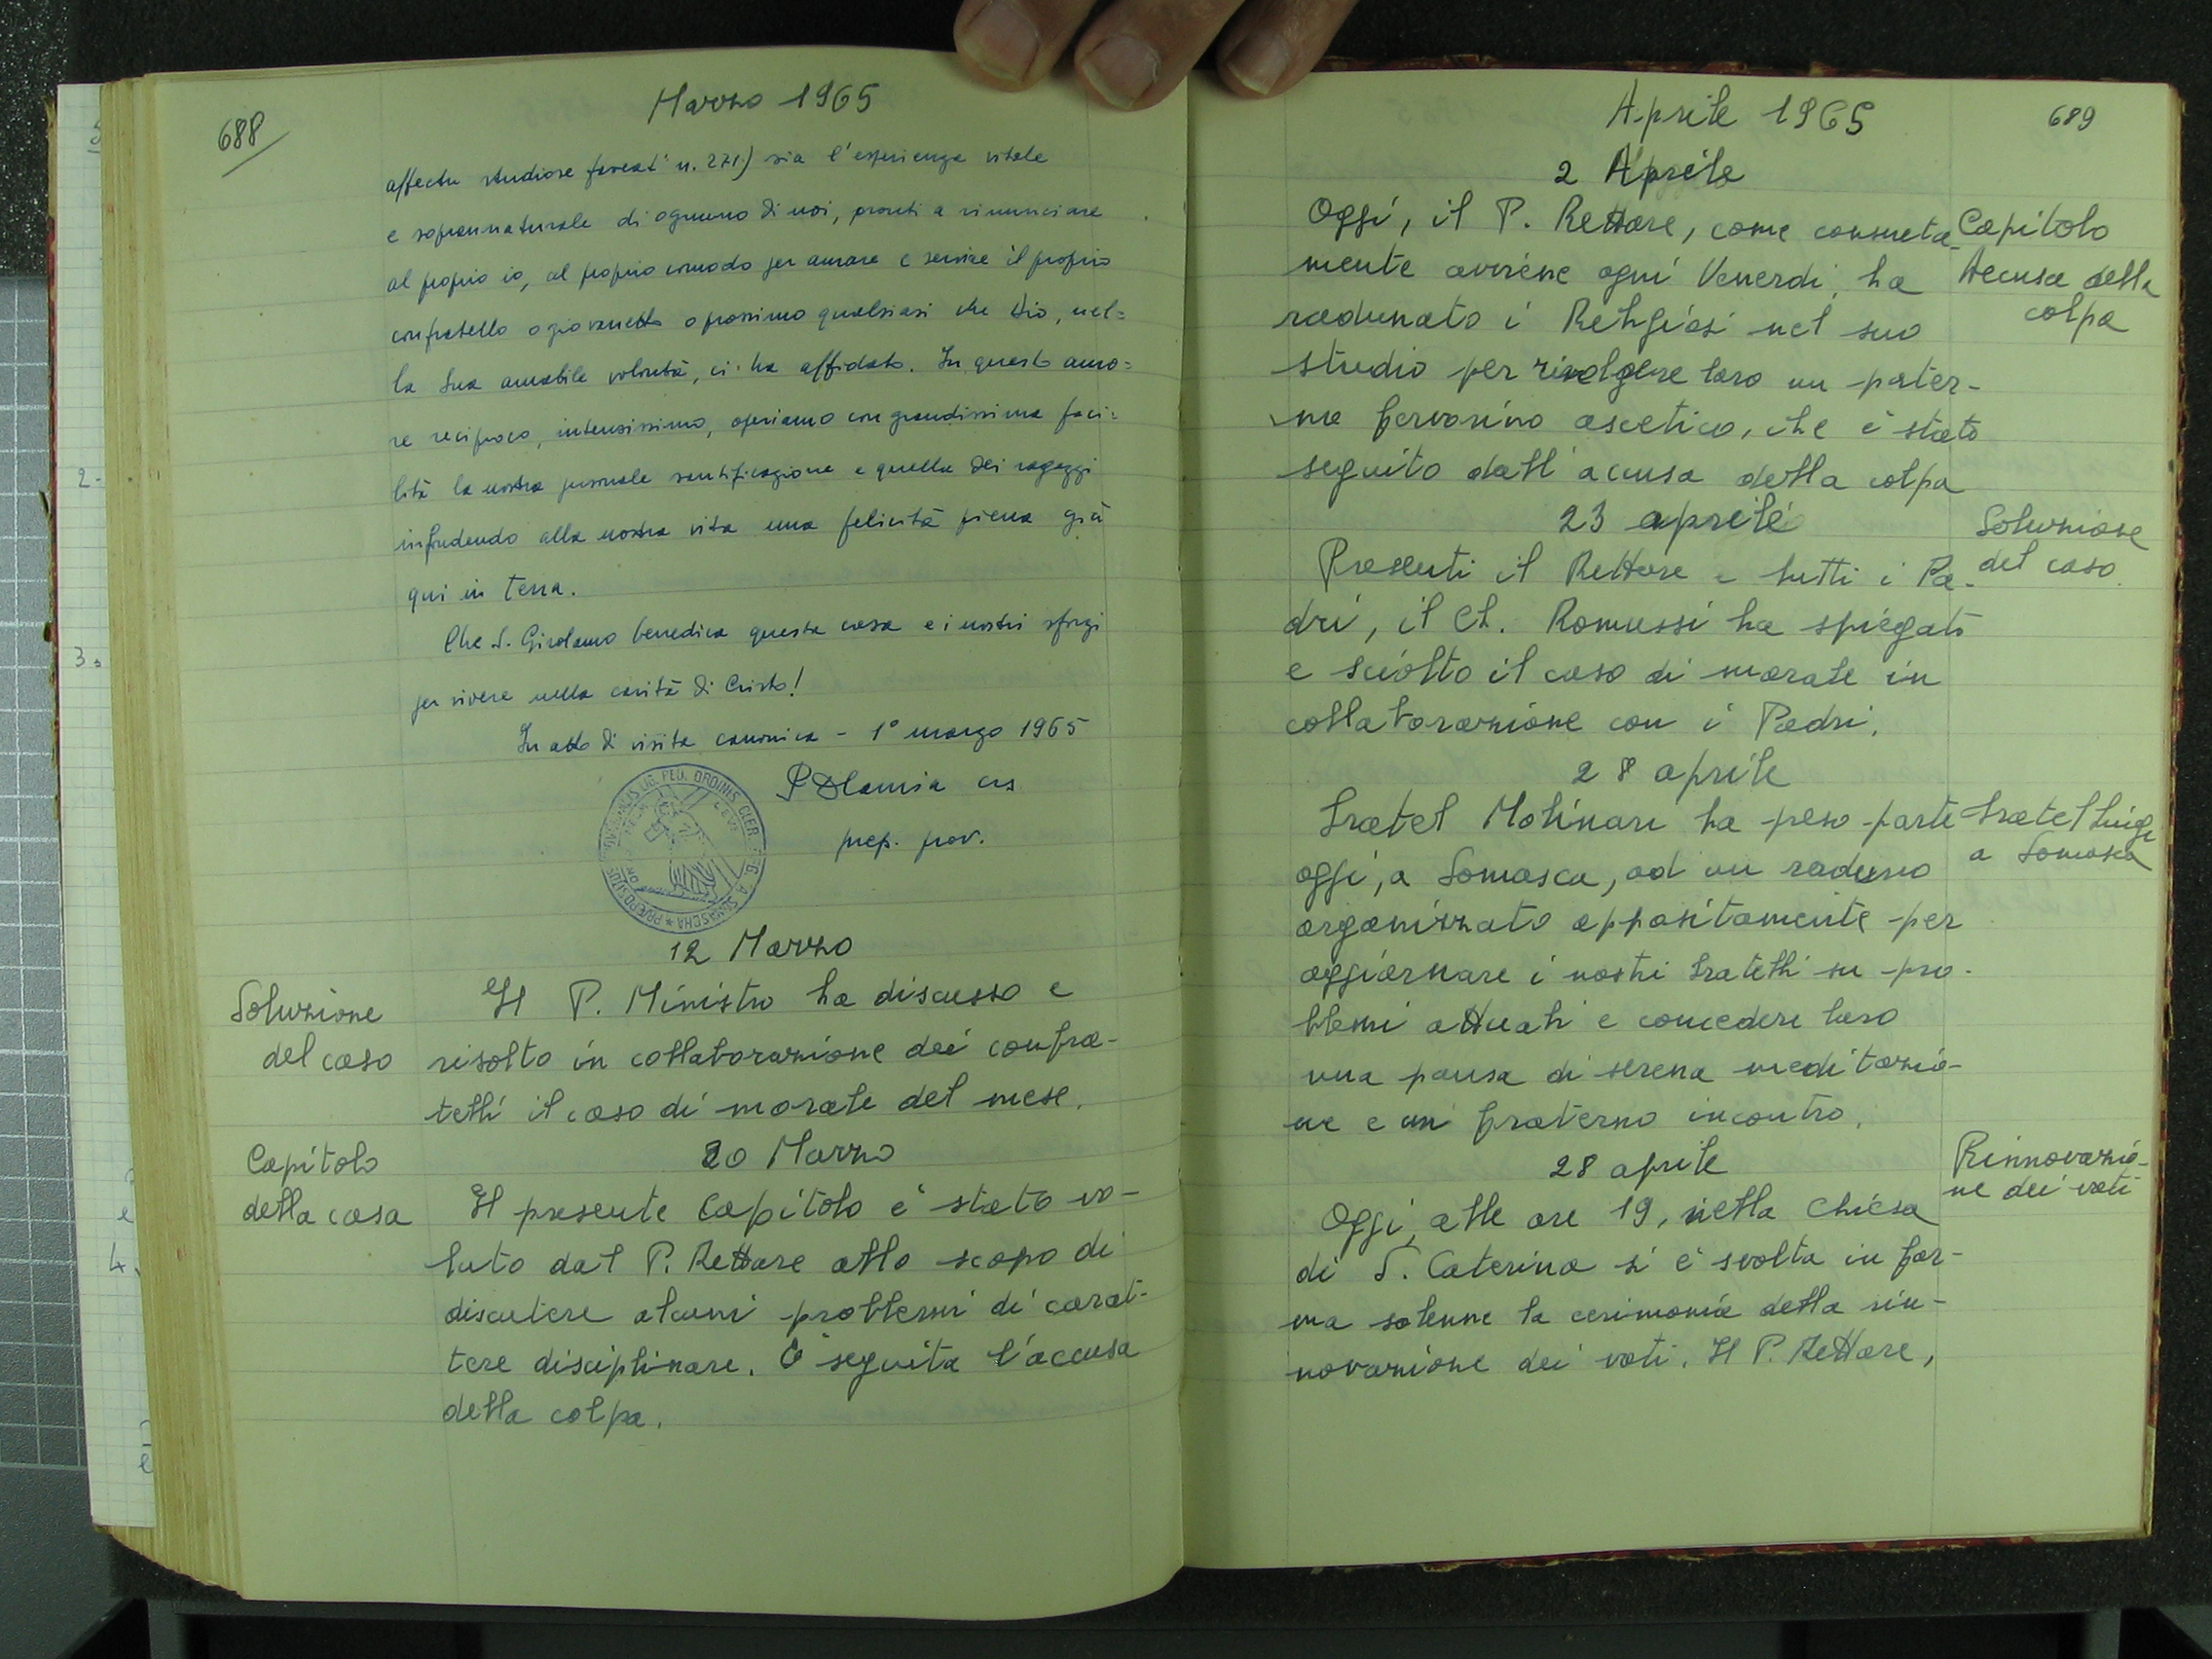 688
Marzo 1965
affectu studiose foveat" n. 271.) sia l'esperienza vitale
e soprannaturale di ognuno di noi, pronti a rinunciare
al proprio io, al proprio comodo per amare e servire il proprio
confratello o giovanetto o prossimo qualsiasi che Dio, nel=
la Sua amabile volontà, ci ha affidato. In questo amo=
re reciproco, intensissimo, operiamo con grandissima faci=
lità la nostra personale santificazione e quella dei ragazzi
infondendo alla nostra vita una felicità piena già
qui in terra.
Che S. Girolamo benedica questa casa e i nostri sforzi
per vivere nella carità di Cristo!
In atto di visita canonica - 1° marzo 1965
crs
prep. prov.
12 Marzo
Soluzione
del caso
Il P. Ministro ha discusso e
risolto in collaborazione dei confra-
telli il caso di morale del mese.
Capitolo
della casa
20 Marzo
Il presente Capitolo è stato vo-
luto dal P. Rettore allo scopo di
discutere alcuni problemi di carat-
tere disciplinare. È seguita l'accusa
della colpa.
Aprile 1965
689
2 Aprile
Capitolo
Accusa della
colpa
Oggi, il P. Rettore, come consueta-
mente avviene ogni Venerdì, ha
radunato i Religiosi nel suo
studio per rivolgere loro un pater-
no fervorino ascetico, che è stato
seguito dall'accusa della colpa
23 aprile
Soluzione
del caso.
Presenti il Rettore e tutti i Pa-
dri, il Ch. Romussi ha spiegato
e sciolto il caso di morale in
collaborazione con i Padri.
28 aprile
Fratel Luigi
a Somasca
Fratel Molinari ha preso parte
oggi, a Somasca, ad un raduno
organizzato appositamente per
aggiornare i nostri fratelli su pro-
blemi attuali e concedere loro
una pausa di serena meditazio-
ne e un fraterno incontro.
28 aprile
Rinnovazio-
ne dei voti
Oggi, alle ore 19, nella Chiesa
di S. Caterina si è svolta in for-
ma solenne la cerimonia della rin-
novazione dei voti. Il P. Rettore,